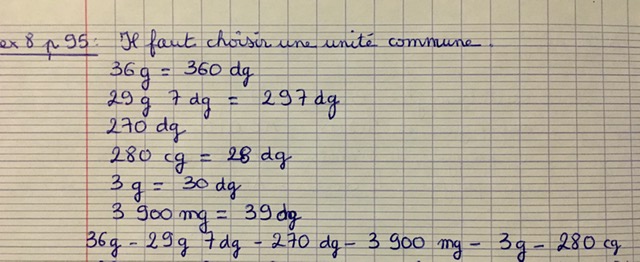 ex 8 p 95 : Il faut choisir une unité commune.
36g = 360 dg
29g 7 dg = 297 dg
270 dg
280 cg = 28 dg
3 g = 30 dg
3 900 mg = 39 dg
36g - 29g 7dg - 270 dg - 3 900 mg - 3g - 280 cg